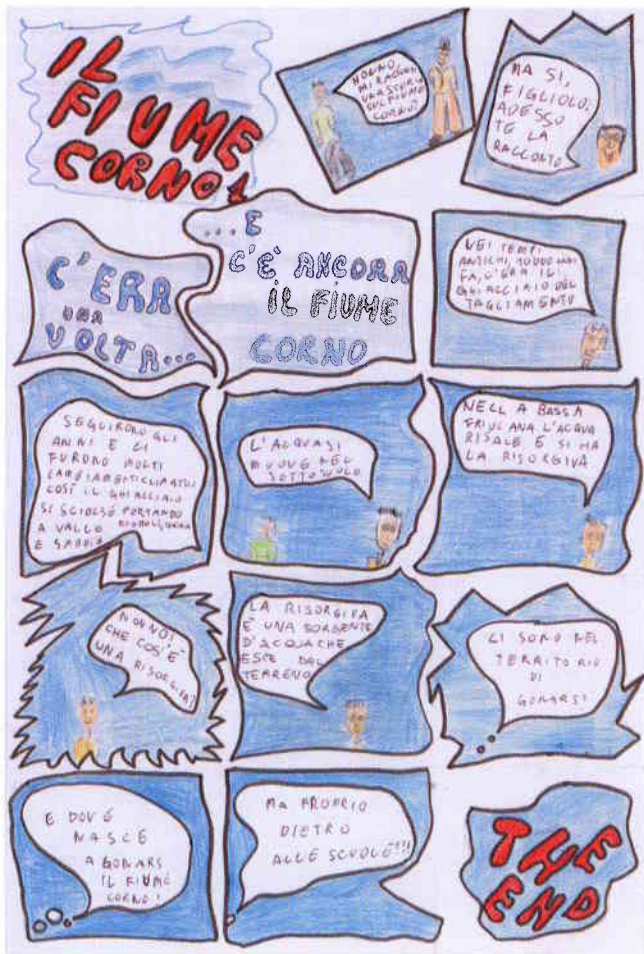 IL
FIUME
CORNO
NONNO,
MI RACCONTI
UNA STORIA
SUL FIUME
CORNO?
MA SI,
FIGLIOLO,
ADESSO
TE LA
RACCONTO
C'ERA
UNA
VOLTA...
...E
C'E' ANCORA
IL FIUME
CORNO
NEI TEMPI
ANTICHI, ANNI
FA, C'ERA IL
GHIACCIAIO DEL
TAGLIAMENTO
SEGUIRONO GLI
ANNI E CI
FURONO MOLTI
CAMBIAMENTI CLIMATICI
COSÍ IL GHIACCIAIO
SI SCIOLSE PORTANDO
A VALLE
E SABBIA
L'ACQUA SI
MUOVE NEL
SOTTOSUOLO
NELLA BASSA
FRIULANA L'ACQUA
RISALE E SI HA
LA RISORGIVA
NONNO!
CHE COS'É
UNA RISORGIVA?
LA RISORGIVA
É UNA SORGENTE
D'ACQUA CHE
ESCE DAL
TERRENO
CI SONO NEL
TERRITORIO
DI
GONARS!
E DOVE
NASCE
A GONARS
IL FIUME
CORNO?
MA PROPRIO
DIETRO
ALLE SCUOLE!!!
THE
END